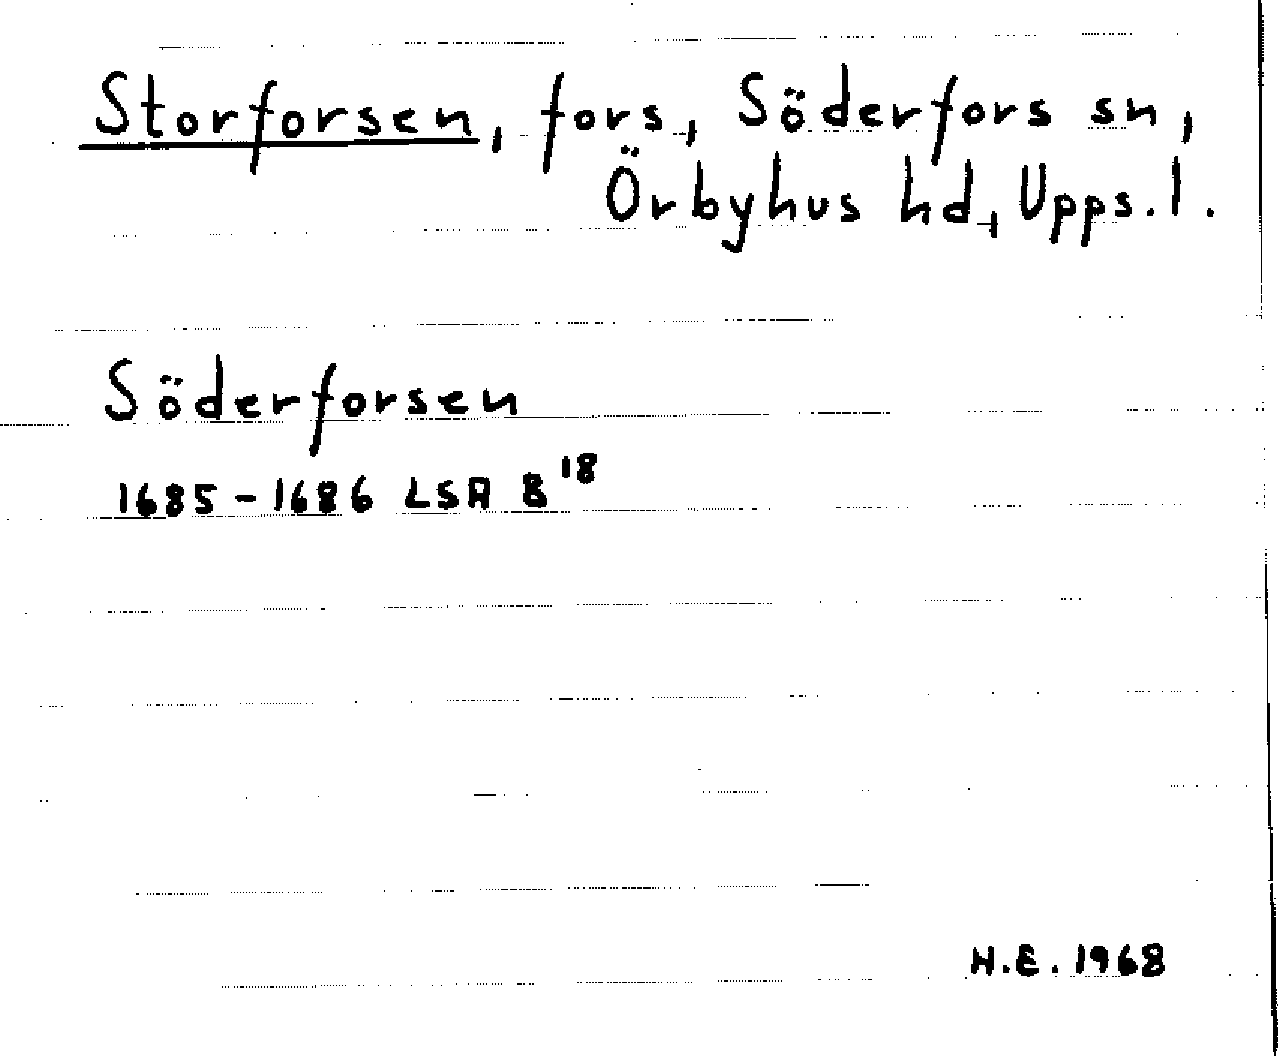 Storforsen, fors, Söderfors sn,
Örbyhus hd, Upps. l.
Söderforsen
1685-1686 LSA B 18
H.E. 1968